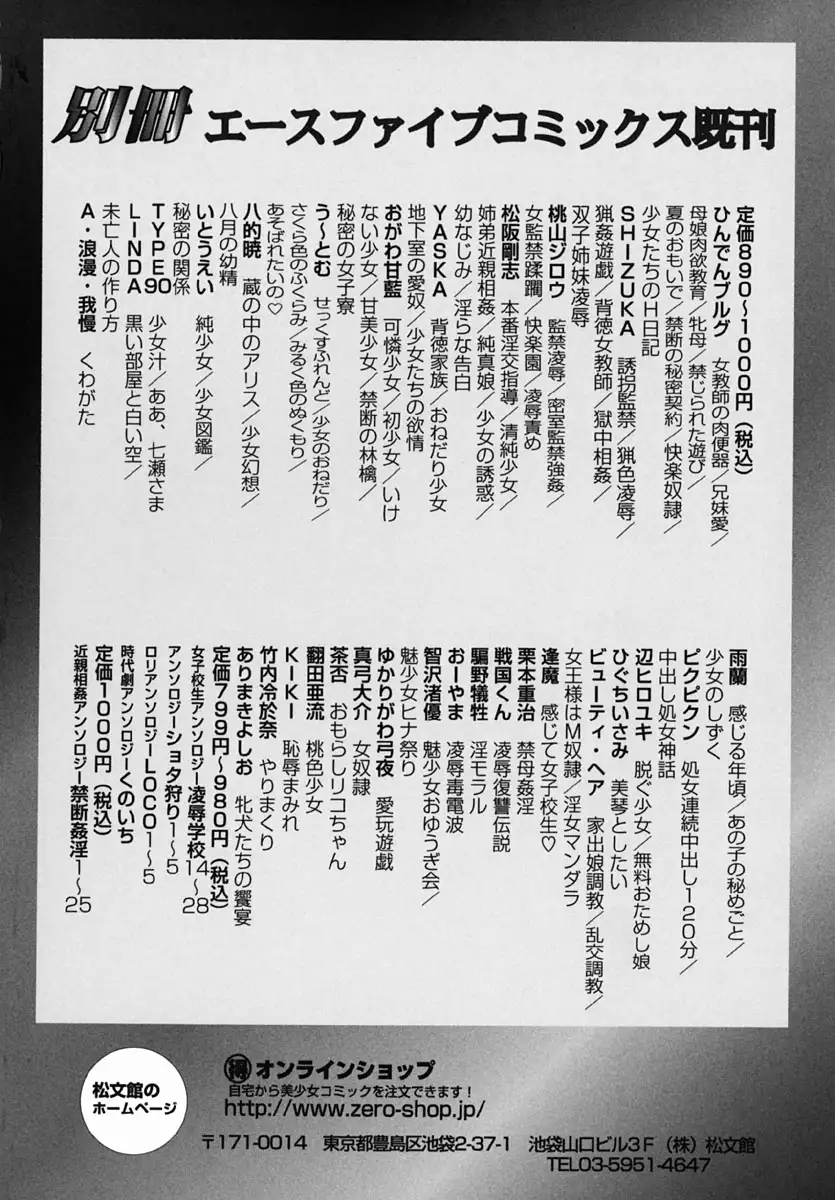 別冊 エースファイブコミックス既刊
定価890〜1000円（税込）
ひんでんブルグ 女教師の肉便器／兄妹愛／
母娘肉欲教育／牝母／禁じられた遊び／
夏のおもいで／禁断の秘密契約／快楽奴隷／
少女たちのH日記
SHIZUKA 誘拐監禁／猟色凌辱／
猟姦遊戯／背徳女教師／獄中相姦／
双子姉妹凌辱
桃山ジロウ 監禁凌辱／密室監禁強姦／
女監禁蹂躙／快楽園／凌辱責め
松阪剛志 本番淫交指導／清純少女／
姉弟近親相姦／純真娘／少女の誘惑／
幼なじみ／淫らな告白
YASKA 背徳家族／おねだり少女
地下室の愛奴／少女たちの欲情
おがわ甘藍 可憐少女／初少女／いけ
ない少女／甘美少女／禁断の林檎／
秘密の女子寮
う〜とむ せっくすふれんど／少女のおねだり／
さくら色のふくらみ／みるく色のぬくもり／
あそばれたいの♡
八的暁 蔵の中のアリス／少女幻想／
八月の幼精
いとうえい 純少女／少女図鑑／
秘密の関係
TYPE90 少女汁／ああ、七瀬さま
LINDA 黒い部屋と白い空／
未亡人の作り方
A・浪漫・我慢 くわがた
雨蘭 感じる年頃／あの子の秘めごと／
少女のしずく
ピクピクン 処女連続中出し120分／
中出し処女神話
辺ヒロユキ 脱ぐ少女／無料おためし娘
ひぐちいさみ 美琴としたい
ビューティ・ヘア 家出娘調教／乱交調教／
女王様はM奴隷／淫女マンダラ
逢魔 感じて女子校生♡
栗本重治 禁母姦淫
戦国くん 凌辱復讐伝説
騙野犠牲 淫モラル
おーやま 凌辱毒電波
智沢渚優 魅少女おゆうぎ会／
魅少女ヒナ祭り
ゆかりがわ弓夜 愛玩遊戯
真弓大介 女奴隷
茶否 おもらしリコちゃん
翻田亜流 桃色少女
KIKI 恥辱まみれ
竹内冷於奈 やりまくり
ありまきよしお 牝犬たちの饗宴
定価799円〜980円（税込）
女子校生アンソロジー凌辱学校14〜28
アンソロジーショタ狩り1〜5
ロリアンソロジーLOCO1〜5
時代劇アンソロジーくのいち
定価1000円（税込）
近親相姦アンソロジー禁断姦淫1〜25
松文館の
ホームページ
得オンラインショップ
自宅から美少女コミックを注文できます！
http://www.zero-shop.jp/
〒171-0014 東京都豊島区池袋2-37-1 池袋山口ビル3F（株）松文館
TEL03-5951-4647